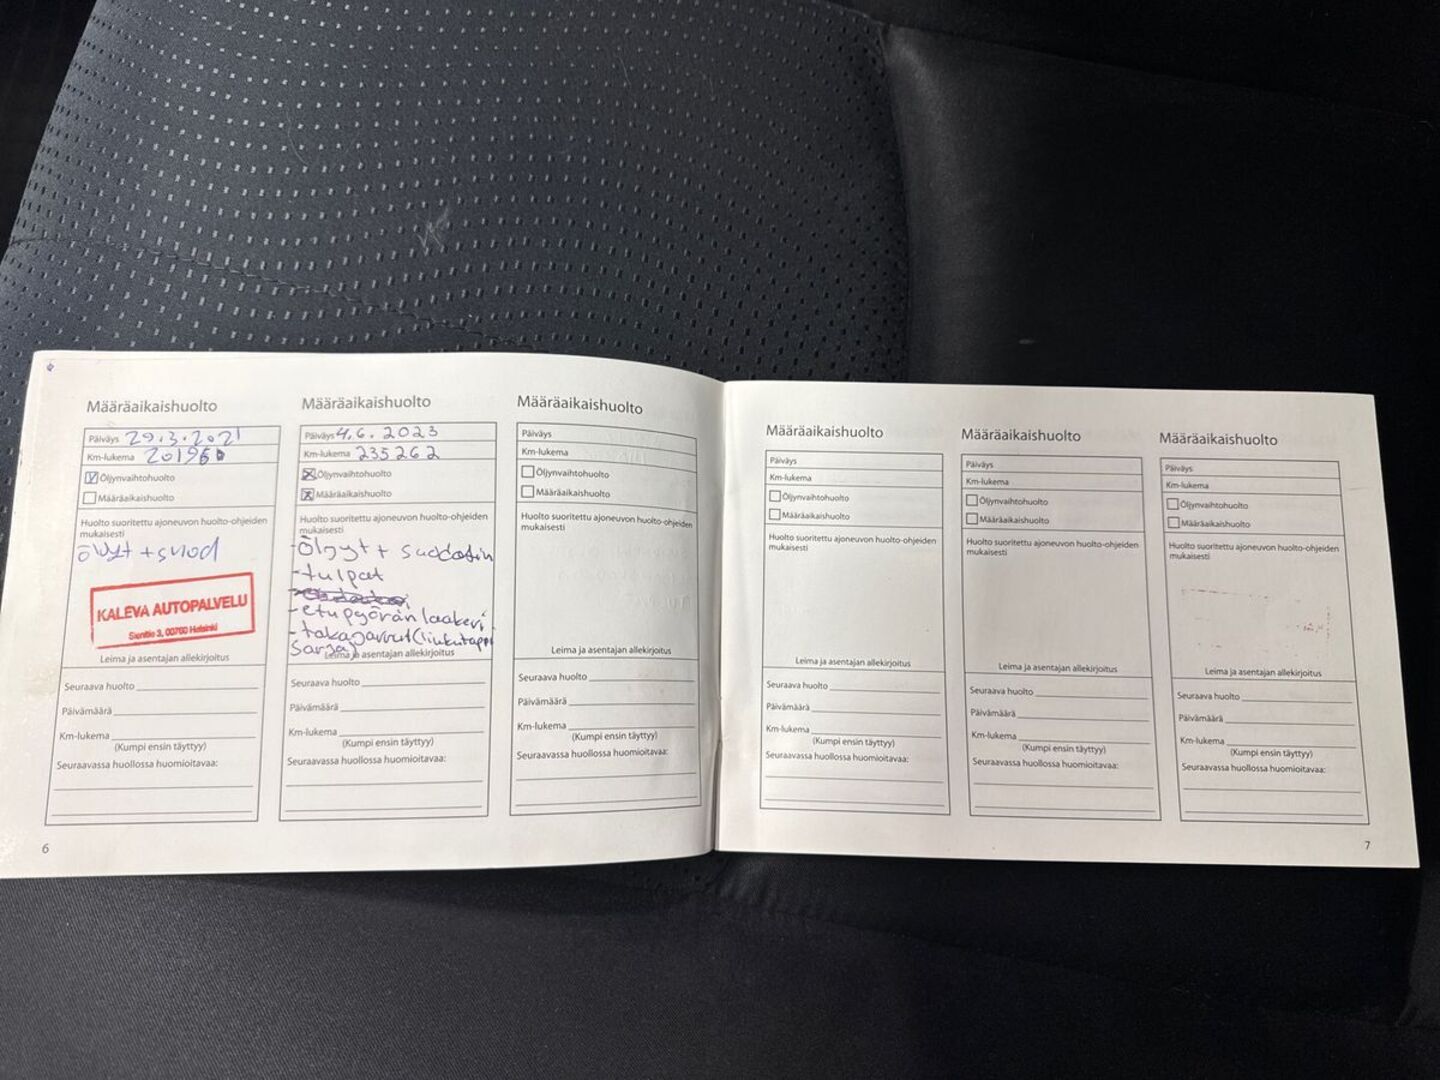 Määräaikaishuolto
Päiväys 29.3.2021
Km-lukema
Öljynvaihtohuolto
Määräaikaishuolto
Huolto suoritettu ajoneuvon huolto-ohjeiden
mukaisesti
öljyt + suod
KALEVA AUTOPALVELU
3, 00760 Helsinki
Leima ja asentajan allekirjoitus
Seuraava huolto
Päivämäärä
Km-lukema
(Kumpi ensin täyttyy)
Seuraavassa huollossa huomioitavaa:
6
Määräaikaishuolto
Päiväys 4.6.2023
Km-lukema 235262
Öljynvaihtohuolto
Määräaikaishuolto
Huolto suoritettu ajoneuvon huolto-ohjeiden
mukaisesti
-Öljyt + suodatin
-tulpat
-etupyörän laakeri
-takajarrut (liukutappi
sarja)
Leima ja asentajan allekirjoitus
Seuraava huolto
Päivämäärä
Km-lukema
(Kumpi ensin täyttyy)
Seuraavassa huollossa huomioitavaa:
Määräaikaishuolto
Päiväys
Km-lukema
Öljynvaihtohuolto
Määräaikaishuolto
Huolto suoritettu ajoneuvon huolto-ohjeiden
mukaisesti
Leima ja asentajan allekirjoitus
Seuraava huolto
Päivämäärä
Km-lukema
(Kumpi ensin täyttyy)
Seuraavassa huollossa huomioitavaa:
Määräaikaishuolto
Päiväys
Km-lukema
Öljynvaihtohuolto
Määräaikaishuolto
Huolto suoritettu ajoneuvon huolto-ohjeiden
mukaisesti
Leima ja asentajan allekirjoitus
Seuraava huolto
Päivämäärä
Km-lukema
(Kumpi ensin täyttyy)
Seuraavassa huollossa huomioitavaa:
Määräaikaishuolto
Päiväys
Km-lukema
Öljynvaihtohuolto
Määräaikaishuolto
Huolto suoritettu ajoneuvon huolto-ohjeiden
mukaisesti
Leima ja asentajan allekirjoitus
Seuraava huolto
Päivämäärä
Km-lukema
(Kumpi ensin täyttyy)
Seuraavassa huollossa huomioitavaa:
Määräaikaishuolto
Päiväys
Km-lukema
Öljynvaihtohuolto
Määräaikaishuolto
Huolto suoritettu ajoneuvon huolto-ohjeiden
mukaisesti
Leima ja asentajan allekirjoitus
Seuraava huolto
Päivämäärä
Km-lukema
(Kumpi ensin täyttyy)
Seuraavassa huollossa huomioitavaa:
7